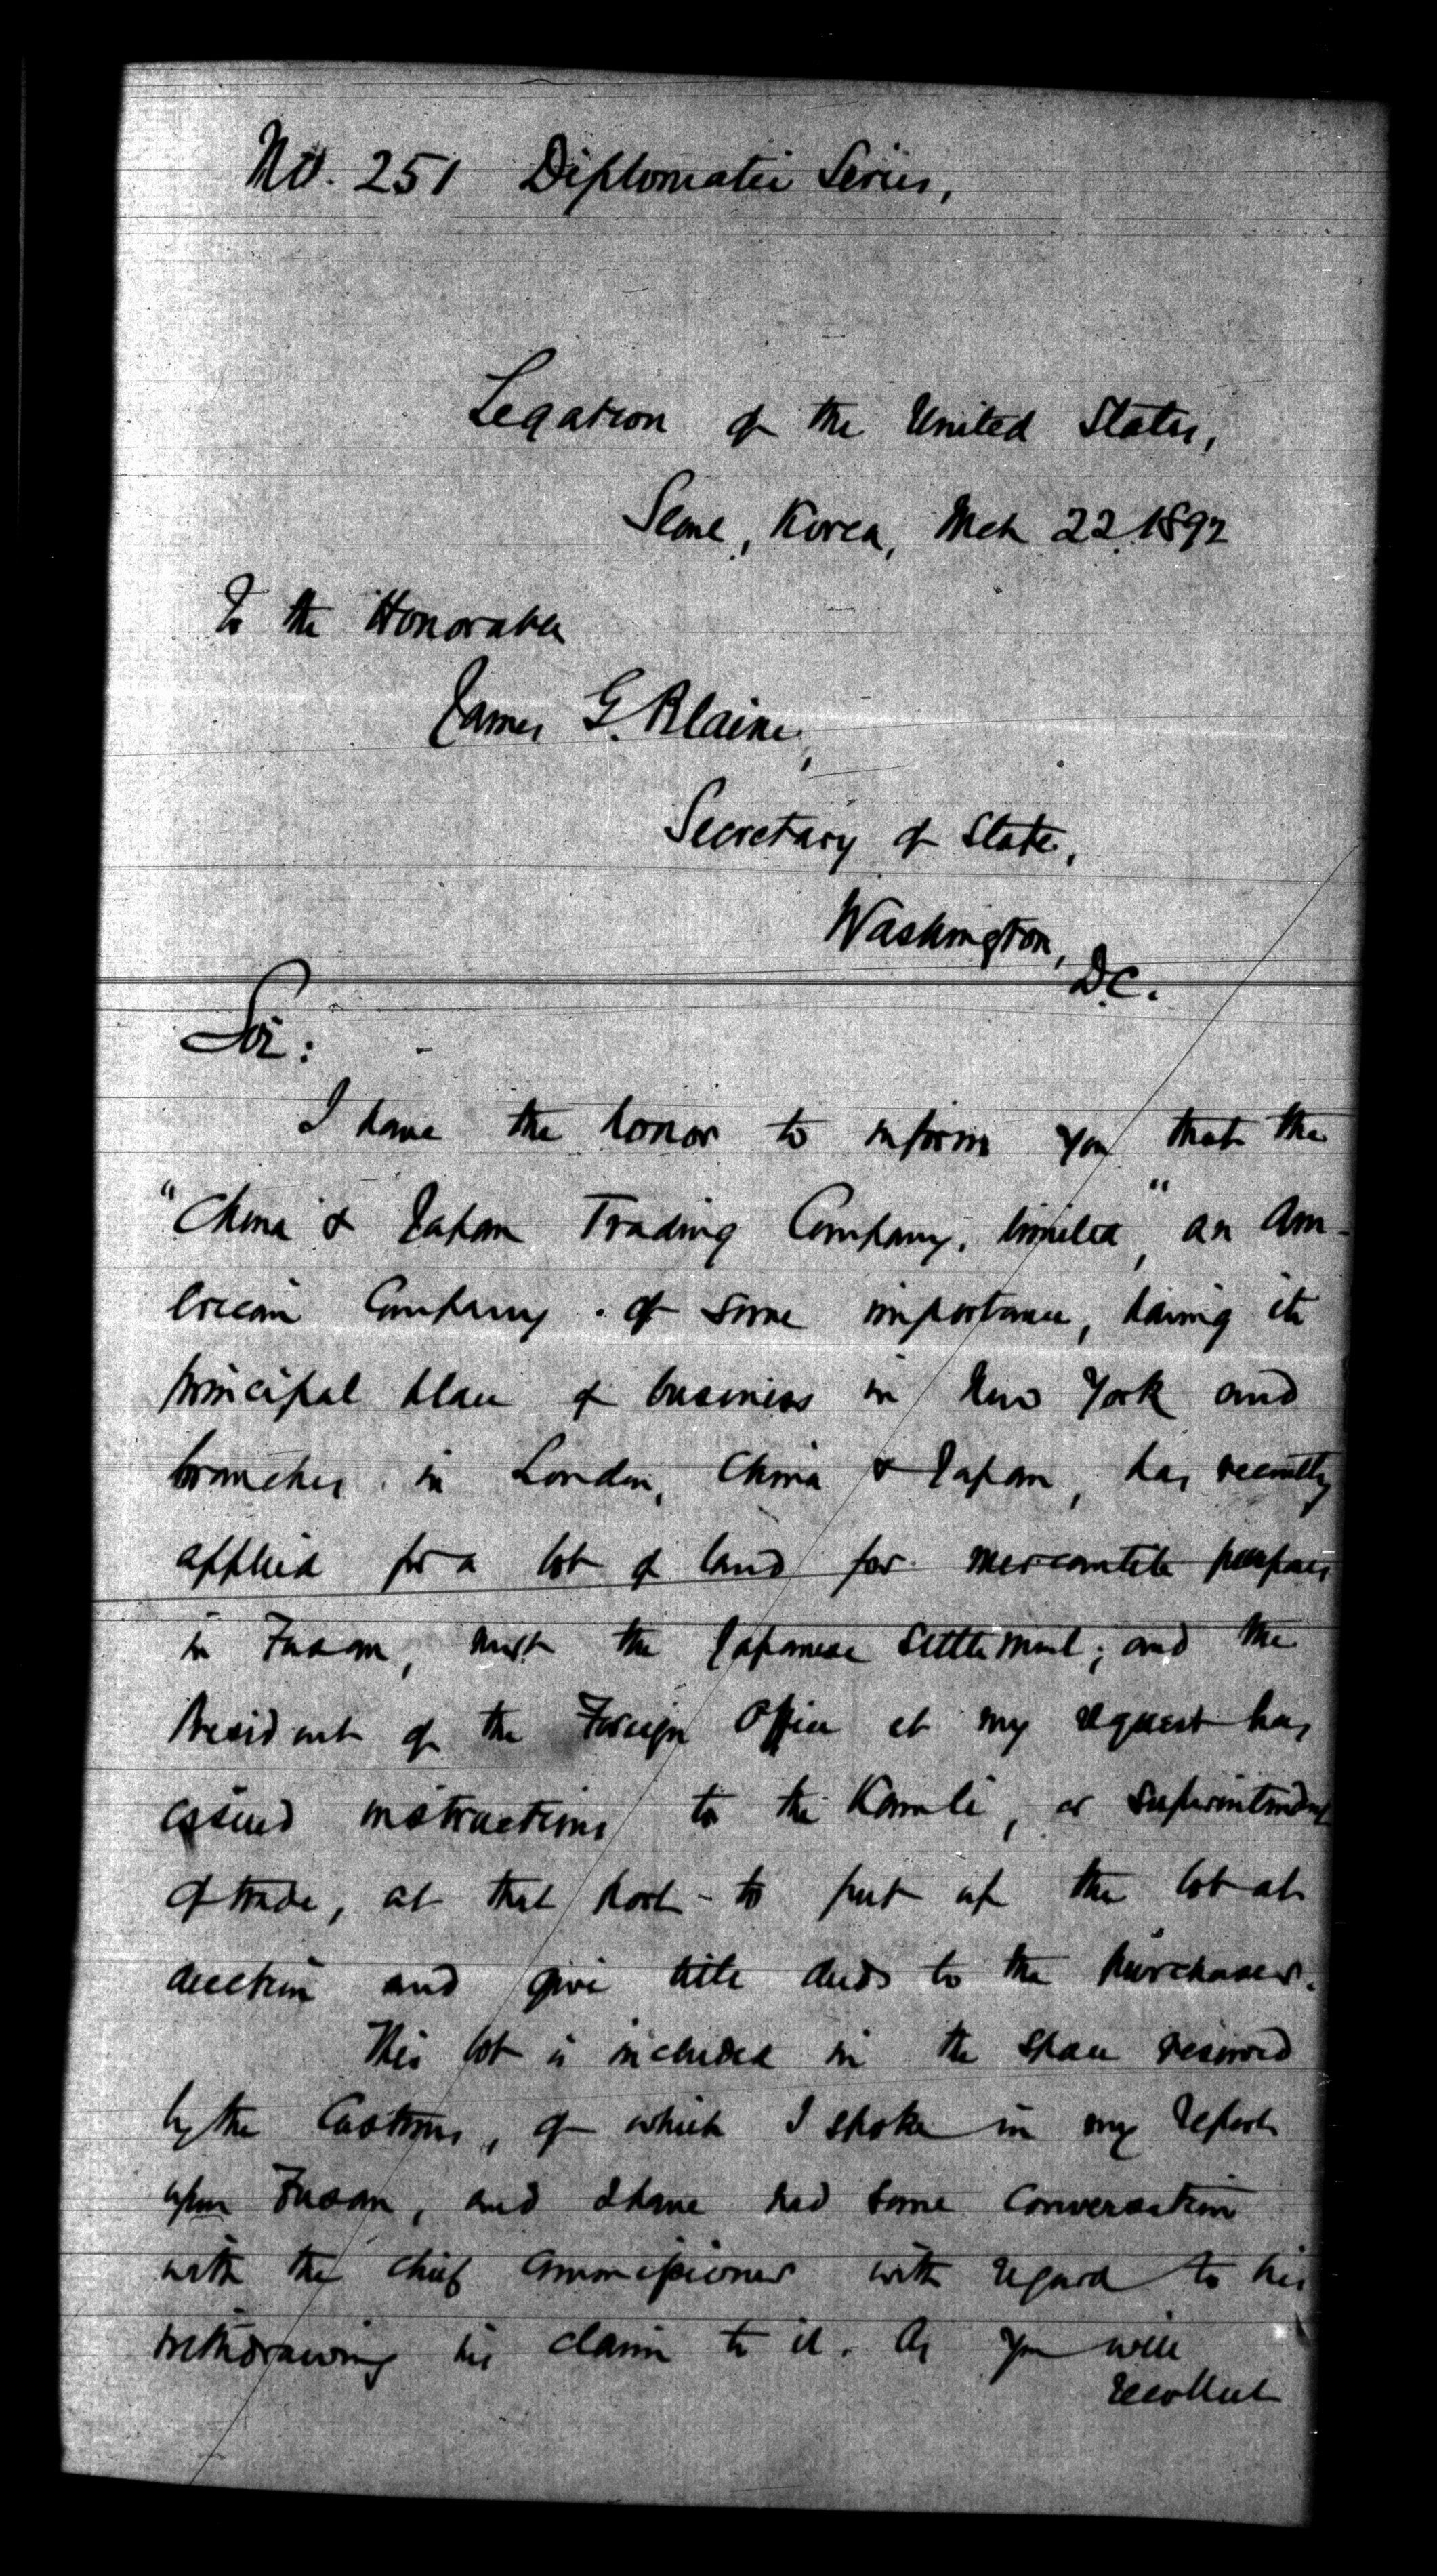 No. 251 Diplomatic Series,
Legation of the United States,
Seoul, Korea, Mch 22, 1892
To the Honorable
James G. Blaine,
Secretary of State,
Washington,
D.C.
Sir:
I have the honor to inform you that the
"China & Japan Trading Company, limited", an Am-
erican Company of some importance, having its
principal place of business in New York and
branches in London, China & Japan, has recently
applied for a lot of land for mercantile purposes
in Fusan, near the Japanese Settlement; and the
President of the Foreign Office at my request has
issued instructions to the Kamli, or Superintendent
of trade, at that port - to put up the lot at
auction and give title deeds to the purchaser.
This lot is included in the space reserved
by the Customs, of which I spoke in my report
upon Fusan, and I have had some conversation
with the Chief Commissioner with regard to his
withdrawing his claim to it. As you will
recollect